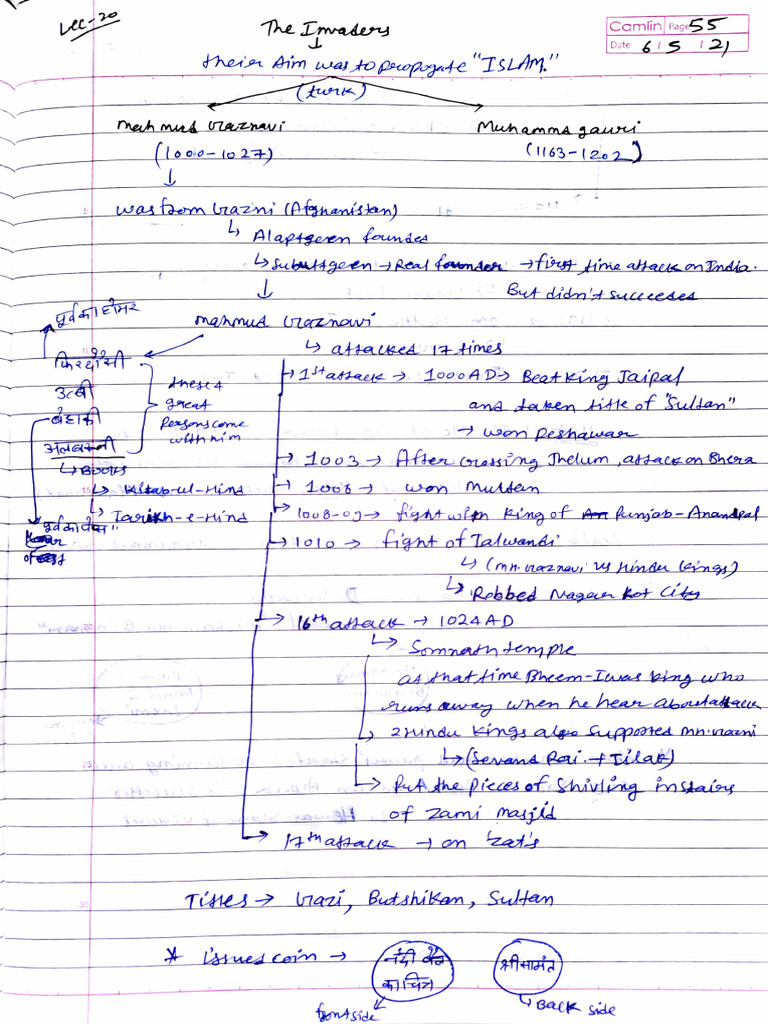 Lec-20
The Invaders
Camlin Page 55
Date 6 / 5 / 21
their Aim was to propogate "ISLAM."
(turk)
Mahmud Gaznavi
Muhammd gauri
(1000-1027)
(1163-1202)
was from Gazni (Afghanistan)
↳ Alaptgeen founded
↳ Subuktgeen → Real founder → first time attack on India.
But didn't succeeded
पूर्व का होमर
mahmud Gaznavi
↳ attacked 17 times
फिरदौसी
उत्बी
बैहाकी
अलबरूनी
these 4
great
persons come
with him
↳ Books
↳ Kitab-ul-Hind
↳ Tarikh-e-Hind
"पूर्व का पेप्स"
1st attack → 1000 AD → Beat King Jaipal
and taken title of "Sultan"
→ won Peshawar
1003 → After crossing Jhelum, attack on Bhera
1006 → won Multan
1008-09 → fight with King of Punjab-Anandpal
1010 → fight of Talwandi
↳ (mh. Gaznavi vs Hindu kings)
↳ Robbed Nagar kot City
16th attack → 1024 AD
↳ Somnath temple
as that time Bheem-I was king who
runs away when he hear about attack
↳ 2 Hindu Kings also supported mh. Gazni
↳ (Sevand Rai + Tilak)
→ Put the pieces of Shivling in stairs
of Zami masjid
17th attack → on Zat's
Titles → Gazi, Butshikan, Sultan
* issued coin →
नंदी बैल
का चित्र
श्री सामंत
front side
↳ Back side